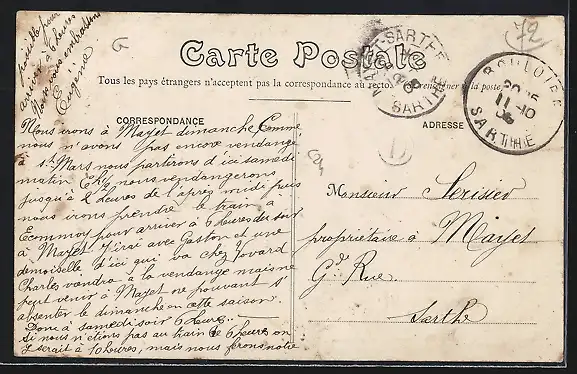 72
G
Carte Postale
Tous les pays étrangers n'acceptent pas la correspondance au recto
renseigner à la poste
SARTHE
SARTHE
BOULOIRE
20 15
11 -10
06
SARTHE
CORRESPONDANCE
ADRESSE
possible pour
arriver à 6 heures
Nous vous embrassons
Eugénie
Nous irons à Mayet dimanche Comme
nous n'avons pas encore vendangé
à St. Mars nous partirons d'ici samedi
matin nous vendangerons
jusqu'à 2 heures de l'après midi puis
nous irons prendre le train à
Ecommoy pour arriver à 6 heures du soir
à Mayet J'irai avec Gaston et une
demoiselle d'ici qui va chez Jovard
Charles viendra à la vendange mais ne
peut venir à Mayet ne pouvant s'
absenter le dimanche en cette saison.
Donc à samedi soir 6 heures.
Si nous n'étions pas au train de 6 heures on
y serait à 10 heures, mais nous ferons notre
Monsieur
propriétaire à Mayet
Gde Rue.
Sarthe